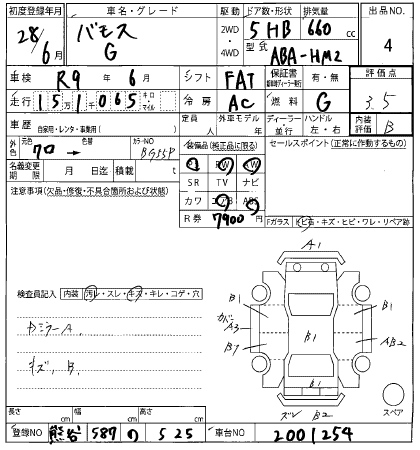 初度登録年月 車名・グレード 駆動 ドア数・形状 排気量 出品NO.
28/6月 バモス G 2WD 4WD 5HB 660 cc 4
型式 ABA-HM2
車検 R9年6月 シフト FAT 保証書 有・無 評価点
走行 151千065 キロ・マイル 冷房 AC 燃料 G 3.5
車歴 自家用・レンタ・事業用( ) 定員 人 外車モデル 年 ディーラー・並行 ハンドル 左・右 内装評価 B
外色 元色 70 → 色替 カラーNO BG55P 装備品(純正品に限る) セールスポイント(正常に作動するもの)
名義変更期限 月 日迄 積載 t
PS PW AW
SR TV ナビ
注意事項(欠品・修復・不具合箇所および状態) カワ エアB ABS
R券 7900円
Fガラス トビ石・キズ・ヒビ・ワレ・リペア跡
A1
検査員記入 内装 汚レ・スレ・キズ・キレ・コゲ・穴
B1 B1
中ミラーA
A3 B1 AB2
B7
キズ、B
B1
ズレ B2 スペア
長さ cm 幅 cm 高さ cm
登録NO 熊谷 587 の 525 車台NO 2001254